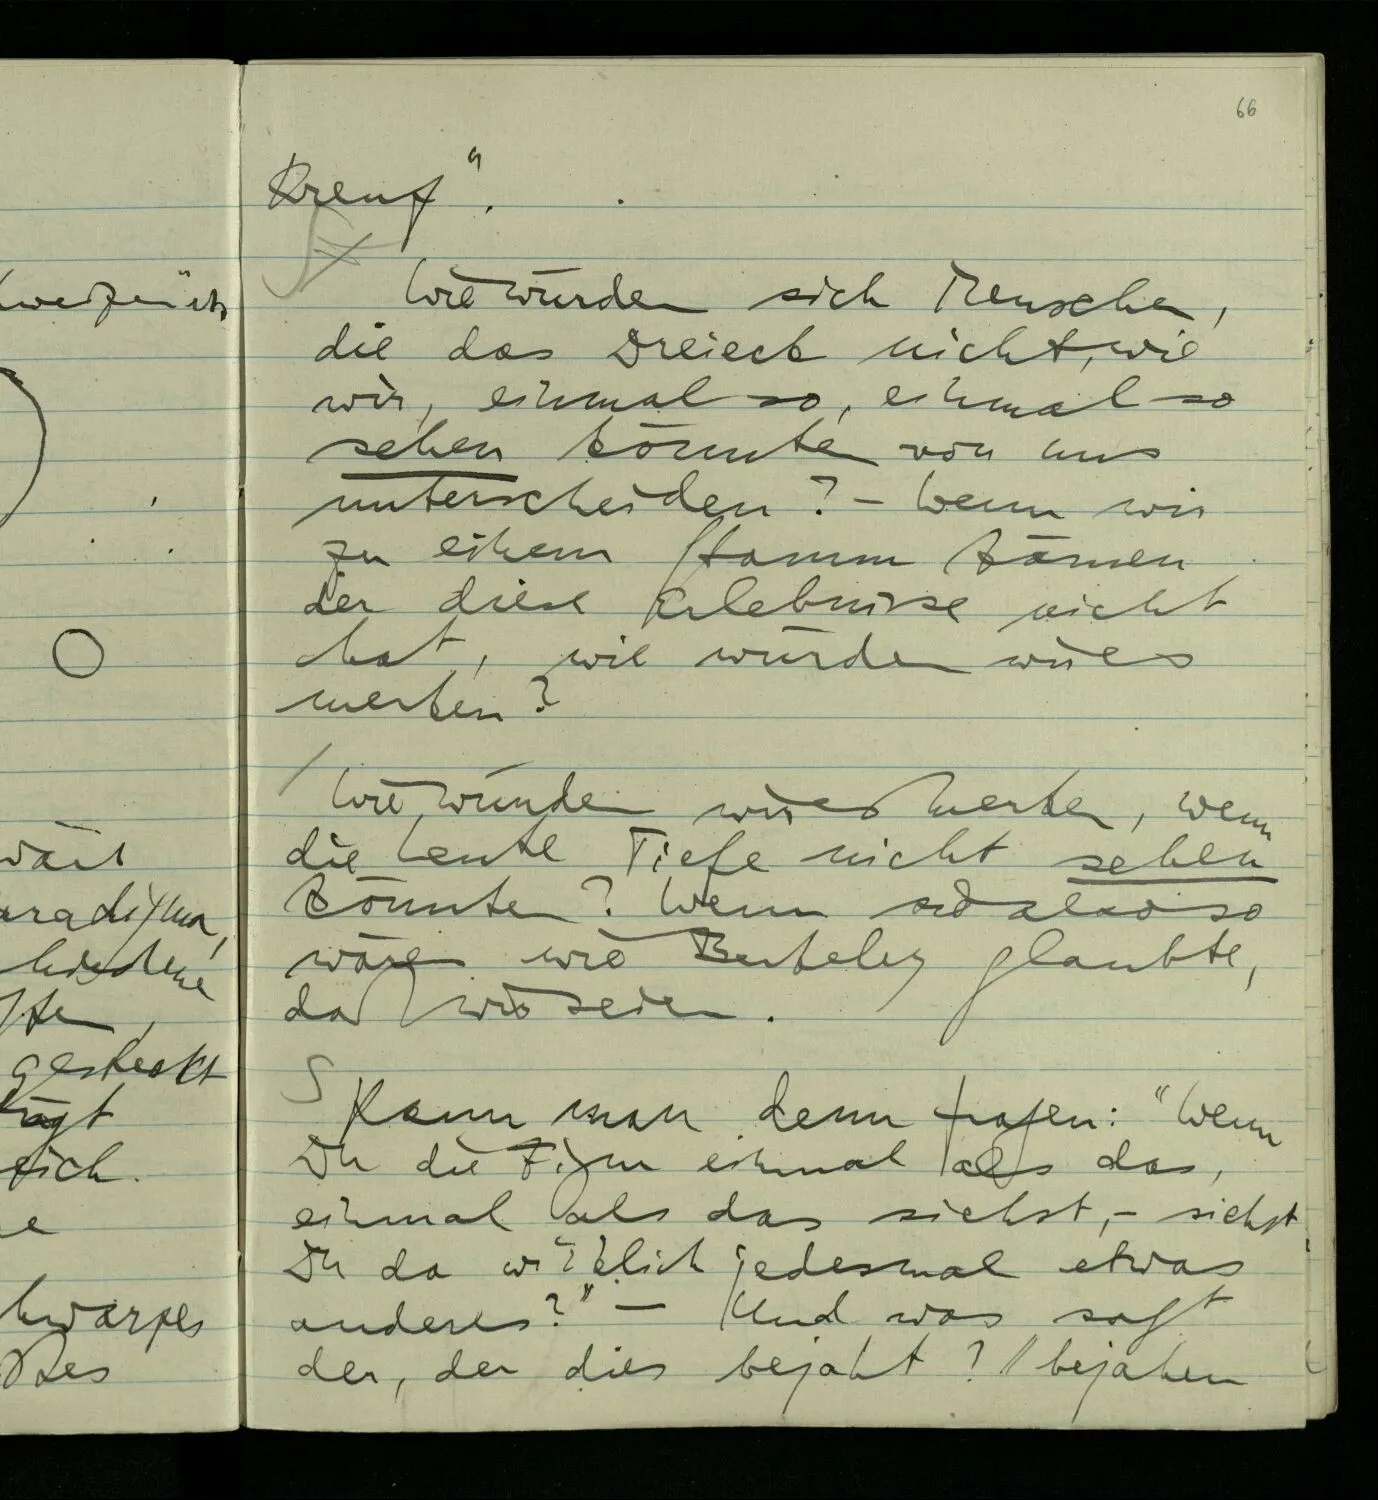 66
Kreuz".
Wie würden sich Menschen,
die das Dreieck nicht, wie
wir, einmal so, einmal so
sehen könnten von uns
unterscheiden? – Wenn wir
zu einem Stamm kämen
der diese Erlebnisse nicht
hat, wie würden wir es
merken?
/ Wie würden wir es merken, wenn
die Leute Tiefe nicht sehen
könnten? Wenn es also so
wäre wie Berkeley glaubte,
daß wir seien.
S Kann man denn fragen: "Wenn
Du die Figur einmal als das,
einmal als das siehst, – siehst
Du da wirklich jedesmal etwas
anderes?" — Und was sagt
der, der dies bejaht? // bejahen
wäre
hwarzes